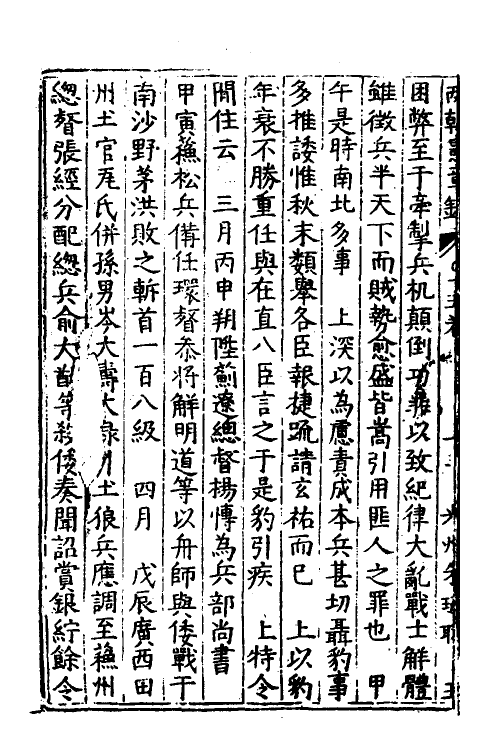 兩朝憲章錄
困弊至于牽掣兵机顛倒功罪以致紀律大亂戰士解體
雖徵兵半天下而賊勢愈盛皆嵩引用匪人之罪也　甲
午是時南北多事　上深以為慮責成本兵甚切聶豹事
多推諉惟秋末類舉各臣報捷疏請玄祐而已　上以豹
年衰不勝重任與在直八臣言之于是豹引疾　上特令
閒住云　三月丙申朔陞薊遼總督楊慱為兵部尚書
甲寅蘓松兵備任環督叅將解明道等以舟師與倭戰于
南沙野茅洪敗之斬首一百八級　四月　戊辰廣西田
州土官瓦氏併孫男岑大壽大祿　土狼兵應調至蘓州
總督張經分配總兵俞大猷等殺倭奏聞詔賞銀紵餘令